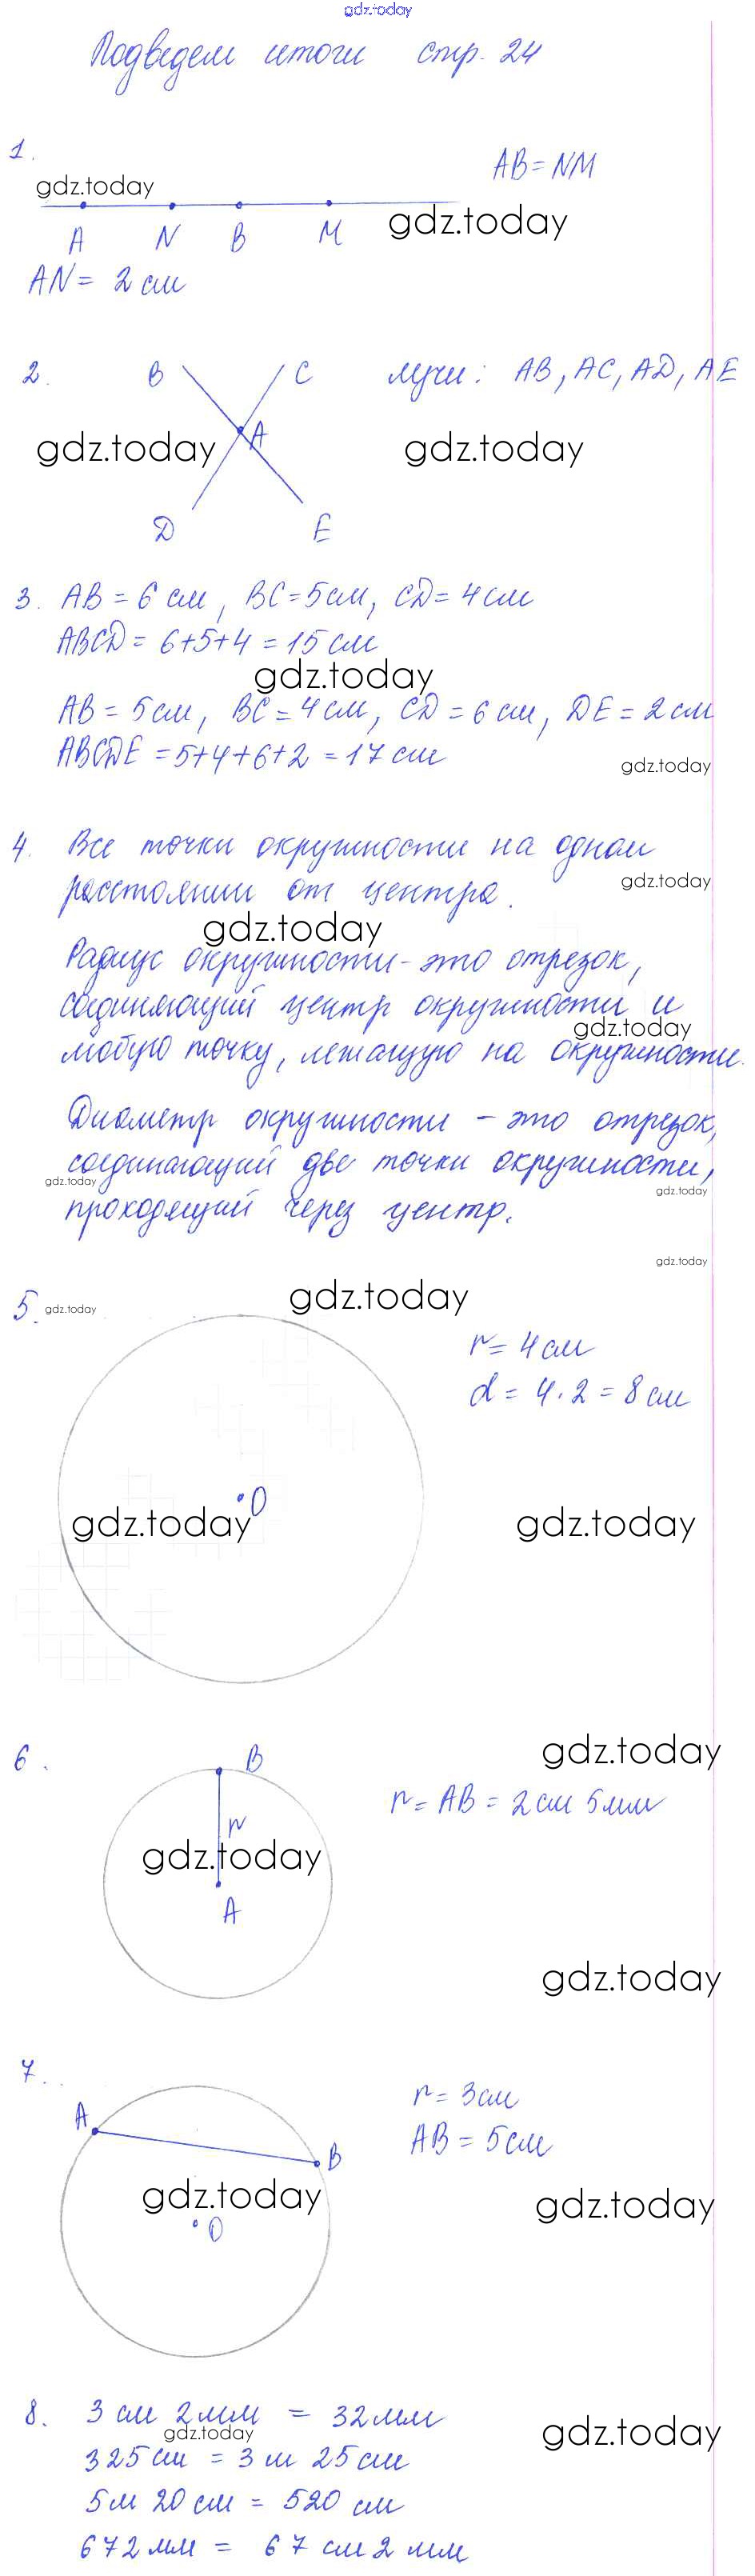 gdz.today
Подведем итоги стр. 24
1.
AB = NM
gdz.today
gdz.today
A N B M
AN = 2 см
2.
B C
лучи: AB, AC, AD, AE
A
gdz.today gdz.today
D E
3. AB = 6 см, BC = 5 см, CD = 4 см
ABCD = 6+5+4 = 15 см
gdz.today
AB = 5 см, BC = 4 см, CD = 6 см, DE = 2 см
ABCDE = 5+4+6+2 = 17 см
gdz.today
4. Все точки окружности на одном
расстоянии от центра.
gdz.today
gdz.today
Радиус окружности - это отрезок,
соединяющий центр окружности и
gdz.today
любую точку, лежащую на окружности.
Диаметр окружности - это отрезок,
соединяющий две точки окружности,
gdz.today
gdz.today
проходящий через центр.
gdz.today
5.
gdz.today
gdz.today
r = 4 см
d = 4 · 2 = 8 см
O
gdz.today gdz.today
6.
B
gdz.today
r = AB = 2 см 5 мм
r
gdz.today
A
gdz.today
7.
A
r = 3 см
AB = 5 см
B
gdz.today gdz.today
O
8. 3 см 2 мм = 32 мм
gdz.today
gdz.today
325 см = 3 м 25 см
5 м 20 см = 520 см
672 мм = 67 см 2 мм